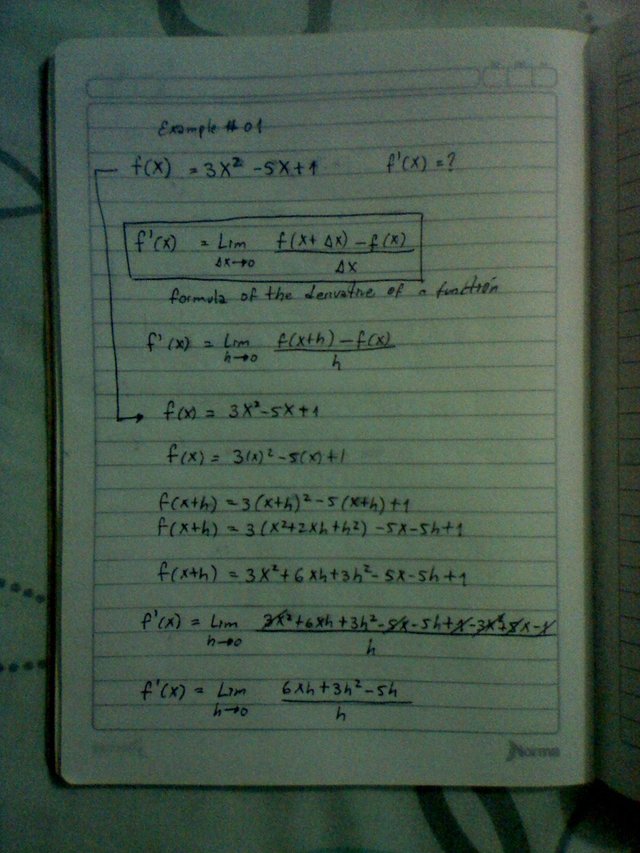 Example # 01
f(x) = 3x² - 5x + 1 f'(x) = ?
f'(x) = Lim Δx→0 f(x + Δx) - f(x) / Δx
formula of the derivative of a function
f'(x) = Lim h→0 f(x+h) - f(x) / h
f(x) = 3x² - 5x + 1
f(x) = 3(x)² - 5(x) + 1
f(x+h) = 3(x+h)² - 5(x+h) + 1
f(x+h) = 3(x² + 2xh + h²) - 5x - 5h + 1
f(x+h) = 3x² + 6xh + 3h² - 5x - 5h + 1
f'(x) = Lim h→0 3x² + 6xh + 3h² - 5x - 5h + 1 - 3x² + 5x - 1 / h
f'(x) = Lim h→0 6xh + 3h² - 5h / h
Norma